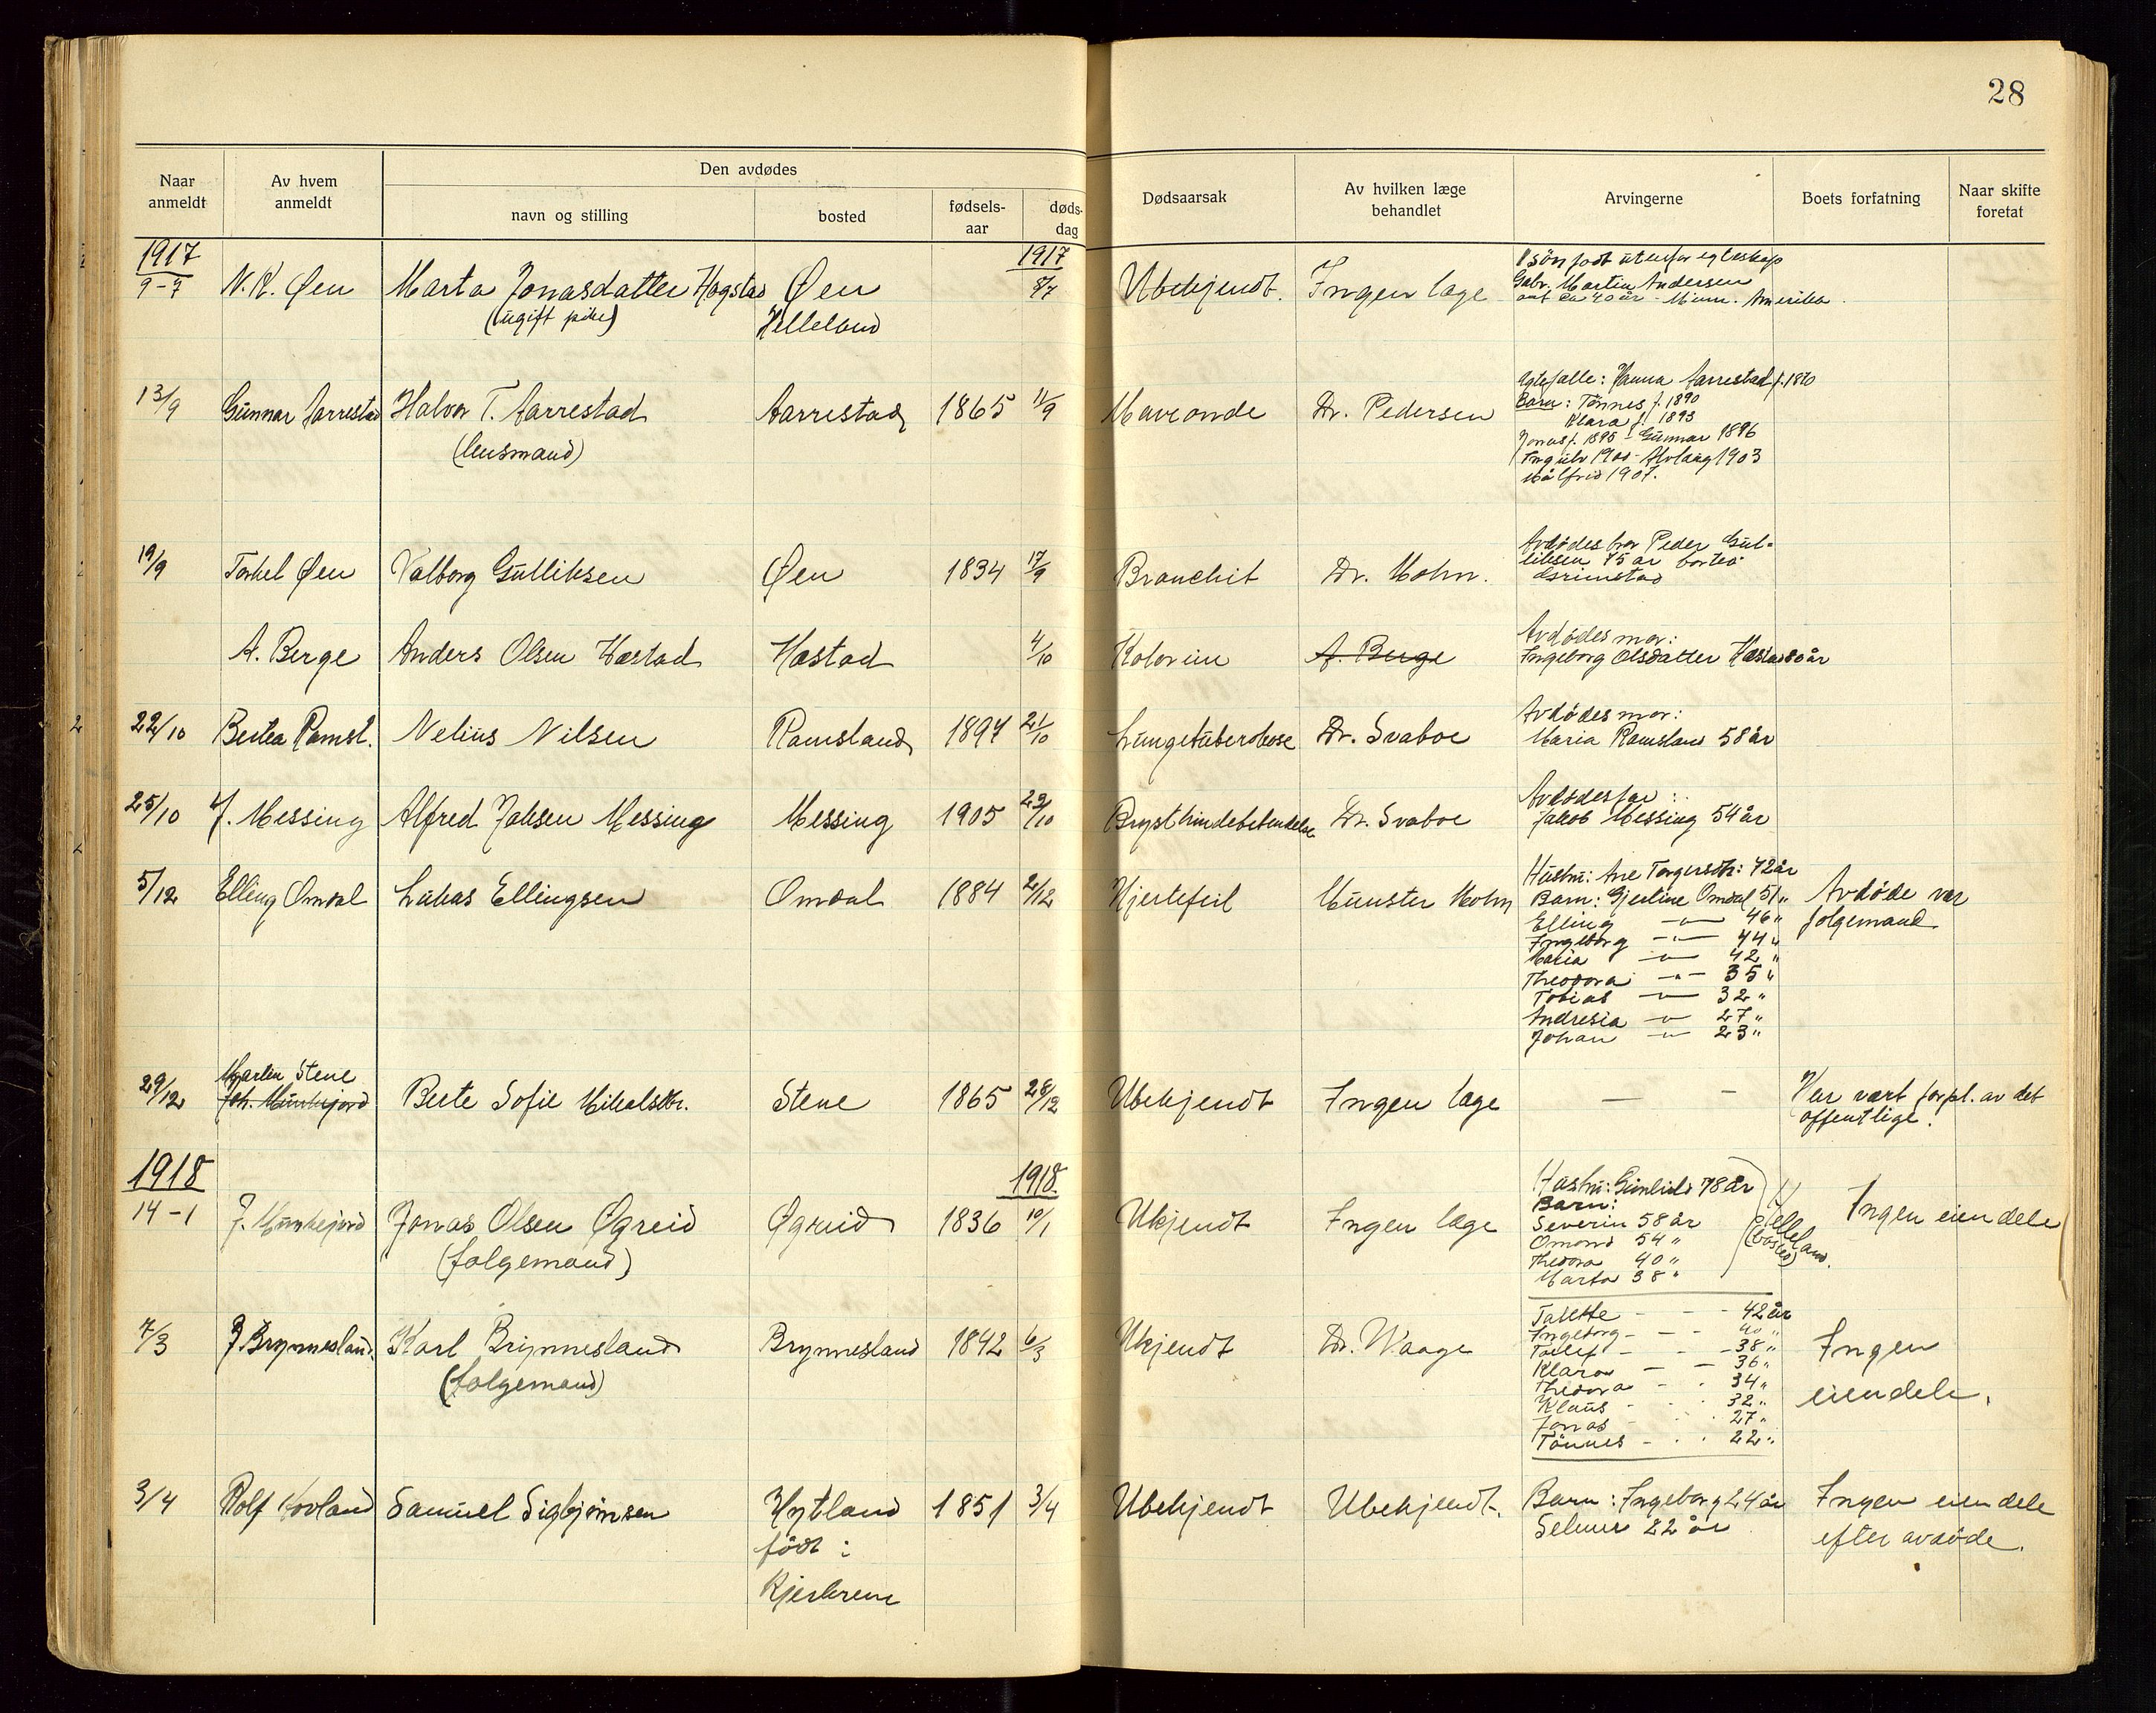 28
Naar anmeldt
Av hvem anmeldt
Den avdødes
navn og stilling
bosted
fødsels-aar
døds-dag
Dødsaarsak
Av hvilken læge behandlet
Arvingerne
Boets forfatning
Naar skifte foretat
1917
1917
9-7 N. K. Øen Marta Jonasdatter Hogstad Øen 8/7 Ubekjendt. Ingen læge
(ugift pike) Helleland
1 søn født utenfor egteskap
Gabr. Martin Andersen
ant ca 40 år - Minn. Amerika
13/9 Gunnar Aarrestad Halvor T. Aarrestad Aarrestad 1865 11/9 Maveonde Dr. Pedersen
(lensmand)
Egtefælle: Hanna Aarrestad f. 1870
Barn: Tønnes f. 1890
Klara f. 1893
Jonas f. 1895 - Gunnar 1896
Ingulv 1900 - Alvlaug 1903
Målfrid 1907.
19/9 Torkel Øen Valborg Gulliksen Øen 1834 17/9 Bronchit Dr. Mohn.
Avdødes bror Peder Gul-
liksen 75 år bosted
Grimstad
A. Berge Anders Olsen Hæstad Hæstad 4/10 Kolorine A. Berge
Avdødes mor:
Ingeborg Olsdatter Hæstad 80 år
22/10 Bertea Ramsl. Nelius Nilsen Ramsland 1897 21/10 Lungetuberkulose Dr. Svaboe
Avdødes mor:
Maria Ramsland 58 år
25/10 J. Messing Alfred Jaksen Messing Messing 1905 22/10 Brysthindebetendelse Dr. Svaboe
Avdødes far:
Jakob Messing 54 år
5/12 Elling Omdal Lukas Ellingsen Omdal 1884 2/12 Hjertefeil Munster Mohn
Hustru: Ane Torgersdtr: 72 år
Barn: Gjertine Omdal 51 "
Elling — " — 46 "
Ingeborg — " — 44 "
Maria — " — 42 "
Theodora — " — 35 "
Tobias — " — 32 "
Andresia — " — 27 "
Johan — " — 23 "
Avdøde var
folgemand
29/12 Martin Stene Berte Sofie Mikalsdtr. Stene 1865 28/12 Ubekjendt Ingen læge — —
Joh. Munkejord
Har vært forpl. av det
offentlige.
1918
1918.
14-1 J. Munkejord Jonas Olsen Øgreid Øgreid 1836 10/1 Ukjendt Ingen læge
(folgemand)
Hustru: Gunhild 78 år
Barn:
Severin 58 år
Omond 54 "
Theodora 40 "
Marta 38 "
Helleland
(bosted)
Ingen eiendele
7/3 J. Brynnesland. Karl Brynnesland Brynnesland 1842 6/3 Ukjendt Dr. Waage
(folgemand)
Talette - - - 42 år
Ingeborg - - - 40 "
Torlef - - - 38 "
Klara - - 36 "
Theodora - - 34 "
Klaus - - 32 "
Jonas - - 27 "
Tønnes - - 22 "
Ingen
eiendele.
3/4 Rolf Hovland Samuel Sigbjørnsen Hytland 1851 3/4 Ubekjendt Ubekjendt.
født:
Bjerkrem
Barn: Ingeborg 24 år
Selmer 22 år
Ingen eiendele
efter avdøde.